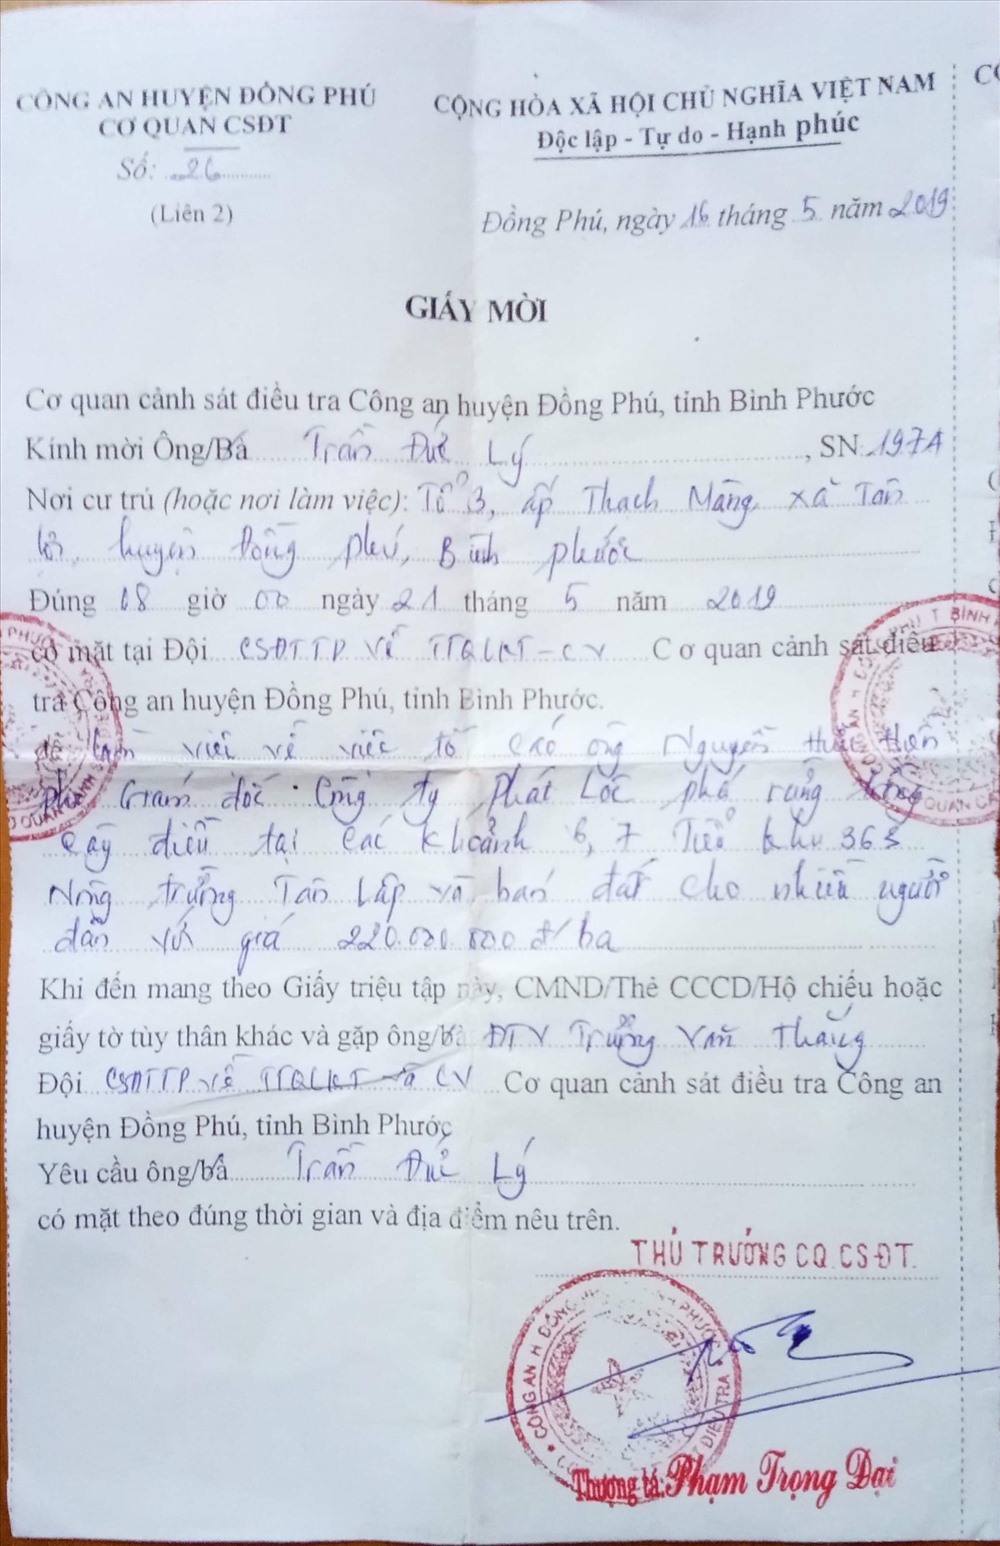 CÔNG AN HUYỆN ĐỒNG PHÚ
CƠ QUAN CSĐT
Số: 26
(Liên 2)
CỘNG HÒA XÃ HỘI CHỦ NGHĨA VIỆT NAM
Độc lập - Tự do - Hạnh phúc
Đồng Phú, ngày 16 tháng 5 năm 2019
GIẤY MỜI
Cơ quan cảnh sát điều tra Công an huyện Đồng Phú, tỉnh Bình Phước
Kính mời Ông/Bà Trần Đức Lý, SN 1974
Nơi cư trú (hoặc nơi làm việc): Tổ 3, ấp Thạch Màng, xã Tân
lợi, huyện Đồng phú, Bình phước
Đúng 08 giờ 00 ngày 21 tháng 5 năm 2019
có mặt tại Đội CSĐTTP về TTQLKT-CV Cơ quan cảnh sát điều
tra Công an huyện Đồng Phú, tỉnh Bình Phước.
để làm việc về việc tố cáo ông Nguyễn Hữu
phó Giám đốc Công ty Phát Lộc phá rừng trồng
cây điều tại các Khoảnh 6, 7 Tiểu khu 363
Nông trường Tân Lập và bán đất cho nhiều người
dân với giá 220.000.000 đ/ha
Khi đến mang theo Giấy triệu tập này, CMND/Thẻ CCCD/Hộ chiếu hoặc
giấy tờ tùy thân khác và gặp ông/bà ĐTV Trương Văn Thắng
Đội CSĐTTP về TTQLKT và CV Cơ quan cảnh sát điều tra Công an
huyện Đồng Phú, tỉnh Bình Phước
Yêu cầu ông/bà Trần Đức Lý
có mặt theo đúng thời gian và địa điểm nêu trên.
THỦ TRƯỞNG CQ CSĐT.
CÔNG AN H ĐỒNG PHƯỚC ĐIỀU TRA
Thượng tá: Phạm Trọng Đại